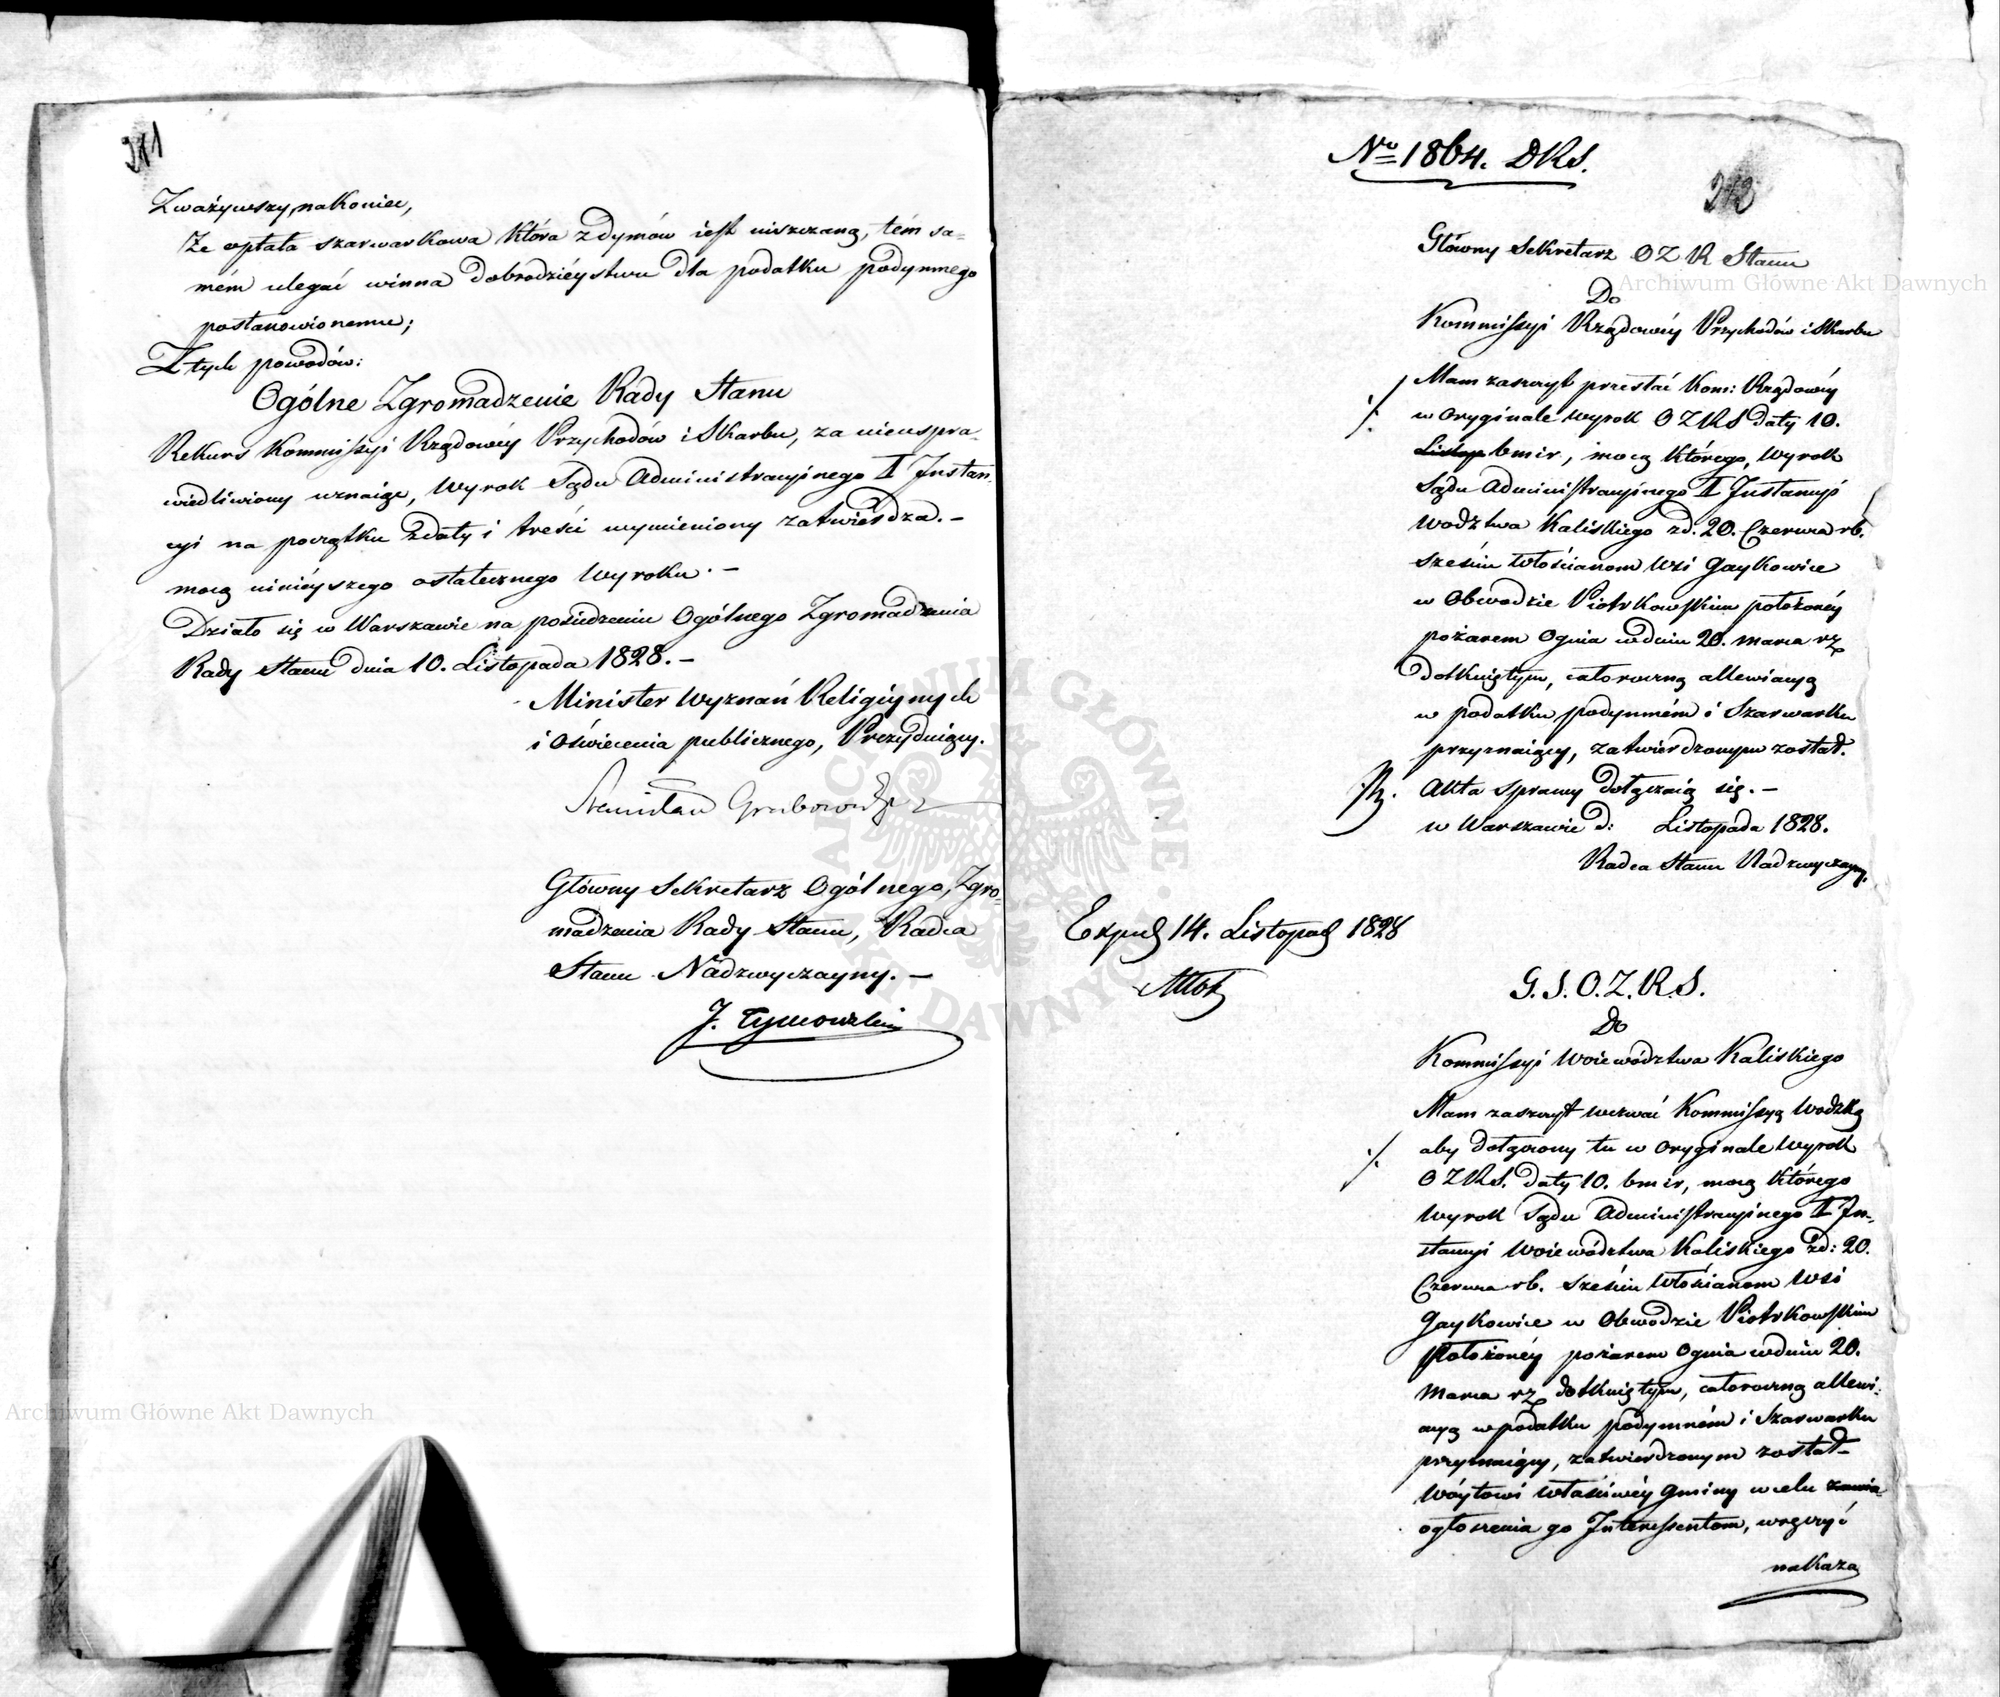 211
Zważywszy nakoniec,
Że opłata szarwarkowa która z dymów iest uiszczaną, tém sa=
mém ulegać winna dobrodzieystwu dla podatku podymnego
postanowionemu;
Z tych powodów:
Ogólne Zgromadzenie Rady Stanu
Rekurs Kommissyi Rządowéy Przychodów i Skarbu, za nieuspra-
wiedliwiony uznaiąc, Wyrok Sądu Administracyinego I Instan-
cyi na początku z daty i treści wymieniony zatwierdza.-
mocą ninieyszego ostatecznego Wyroku.-
Działo się w Warszawie na posiedzeniu Ogólnego Zgromadzenia
Rady Stanu dnia 10. Listopada 1828.-
Minister Wyznań Religiynych
i Oświecenia publicznego, Prezyduiący.
Stanisław Grabowski
Główny Sekretarz Ogólnego Zgro=
madzenia Rady Stanu, Radca
Stanu Nadzwyczayny.-
J. Tymowski
No 1864. DRS.
212
Główny Sekretarz OZ R Stanu
Do
Kommissyi Rządowéy Przychodów i Skarbu
Mam zaszczyt przesłać Kom: Rządowéy
w Oryginale Wyrok OZRS daty 10.
Listop bmir, mocą którego, Wyrok
Sądu Administracyinego I Instancyi
Wodztwa Kaliskiego z d. 20. Czerwca rb.
sześciu Włościanom Wsi Gaykowice
w Obwodzie Piotrkowskim położonéy
pożarem Ognia w dniu 20. marca rz
dotkniętym, całoroczną allewiacyą
w podatku podymném i Szarwarku
przyznaiący, zatwierdzonym został.
Akta sprawy dołączaią się.-
w Warszawie d: Listopada 1828.
Radca Stanu Nadzwyczayny.
Exped 14. Listopad 1828
G. S. O. Z. R. S.
Do
Kommissyi Woiewództwa Kaliskiego
Mam zaszczyt wezwać Kommissyą Wodzką
aby dołączony tu w Oryginale Wyrok
OZRS. daty 10. bmir, mocą którego
Wyrok Sądu Administracyinego I In-
stancyi Woiewództwa Kaliskiego z d: 20.
Czerwca rb. sześciu Włościanom Wsi
Gaykowice w Obwodzie Piotrkowskim
Położonéy pożarem Ognia w dniu 20.
Marca rz dotkniętym, całoroczną allewi:
acyą w podatku podymném i Szarwarku
przyznaiący, zatwierdzonym został-
Wóytowi właściwéy Gminy w celu
ogłoszenia go Interessentom, wręczyć
nakaza
Archiwum Główne Akt Dawnych
Archiwum Główne Akt Dawnych
ARCHIWUM GŁÓWNE AKT DAWNYCH